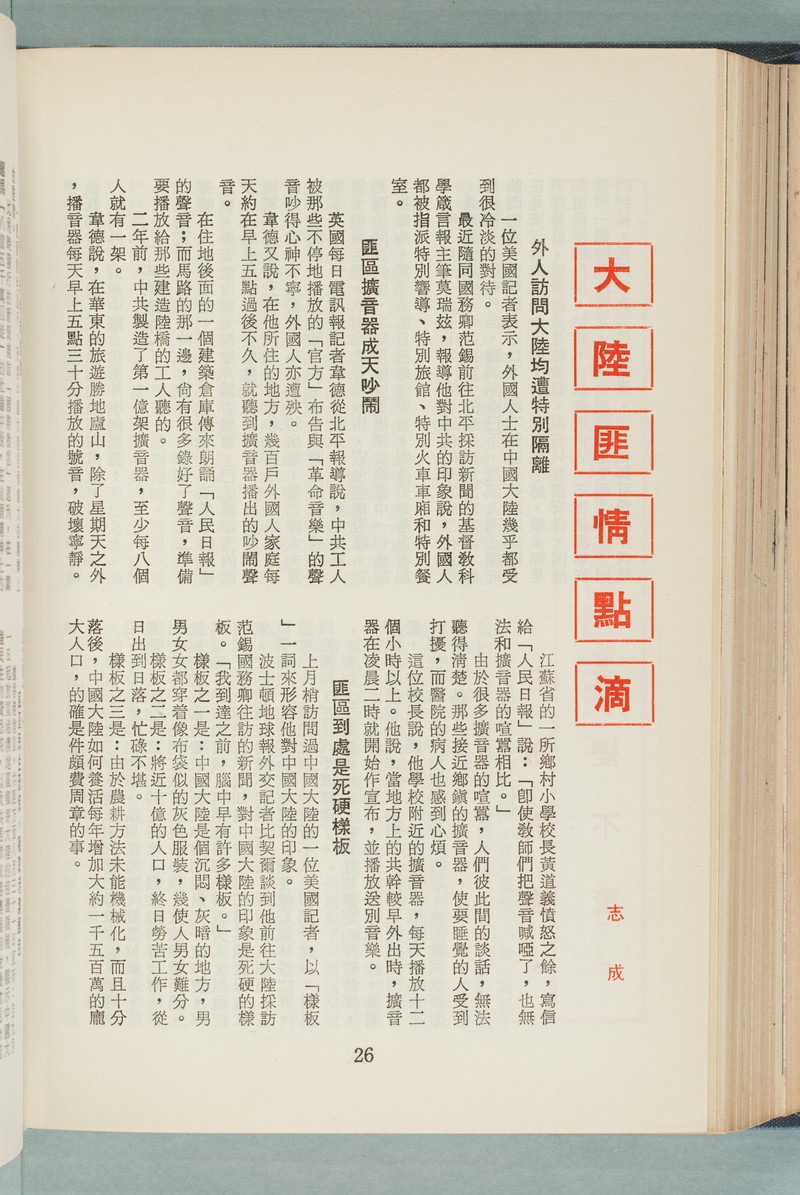 大陸匪情點滴
志成
外人訪問大陸均遭特別隔離
一位美國記者表示，外國人士在中國大陸幾乎都受
到很冷淡的對待。
最近隨同國務卿范錫前往北平採訪新聞的基督敎科
學箴言報主筆莫瑞玆，報導他對中共的印象說，外國人
都被指派特別嚮導、特別旅館、特別火車車廂和特別餐
室。
匪區擴音器成天吵鬧
英國每日電訊報記者韋德從北平報導說，中共工人
被那些不停地播放的「官方」布告與「革命音樂」的聲
音吵得心神不寧，外國人亦遭殃。
韋德又說，在他所住的地方，幾百戶外國人家庭每
天約在早上五點過後不久，就聽到擴音器播出的吵鬧聲
音。
在住地後面的一個建築倉庫傳來朗誦「人民日報」
的聲音；而馬路的那一邊，尙有很多錄好了聲音，準備
要播放給那些建造陸橋的工人聽的。
二年前，中共製造了第一億架擴音器，至少每八個
人就有一架。
韋德說，在華東的旅遊勝地廬山，除了星期天之外
，播音器每天早上五點三十分播放的號音，破壞寧靜。
江蘇省的一所鄉村小學校長黃道義憤怒之餘，寫信
給「人民日報」說：「卽使敎師們把聲音喊啞了，也無
法和擴音器的喧囂相比。」
由於很多擴音器的喧囂，人們彼此間的談話，無法
聽得淸楚。那些接近鄉鎭的擴音器，使要睡覺的人受到
打擾，而醫院的病人也感到心煩。
這位校長說，他學校附近的擴音器，每天播放十二
個小時以上。他說，當地方上的共幹較早外出時，擴音
器在凌晨二時就開始作宣布，並播放送別音樂。
匪區到處是死硬樣板
上月梢訪問過中國大陸的一位美國記者，以「樣板
」一詞來形容他對中國大陸的印象。
波士頓地球報外交記者比契爾談到他前往大陸採訪
范錫國務卿往訪的新聞，對中國大陸的印象是死硬的樣
板。「我到達之前，腦中早有許多樣板。」
樣板之一是：中國大陸是個沉悶、灰暗的地方，男
男女女都穿着像布袋似的灰色服裝，幾使人男女難分。
樣板之二是：將近十億的人口，終日勞苦工作，從
日出到日落，忙碌不堪。
樣板之三是：由於農耕方法未能機械化，而且十分
落後，中國大陸如何養活每年增加大約一千五百萬的龐
大人口，的確是件頗費周章的事。
26